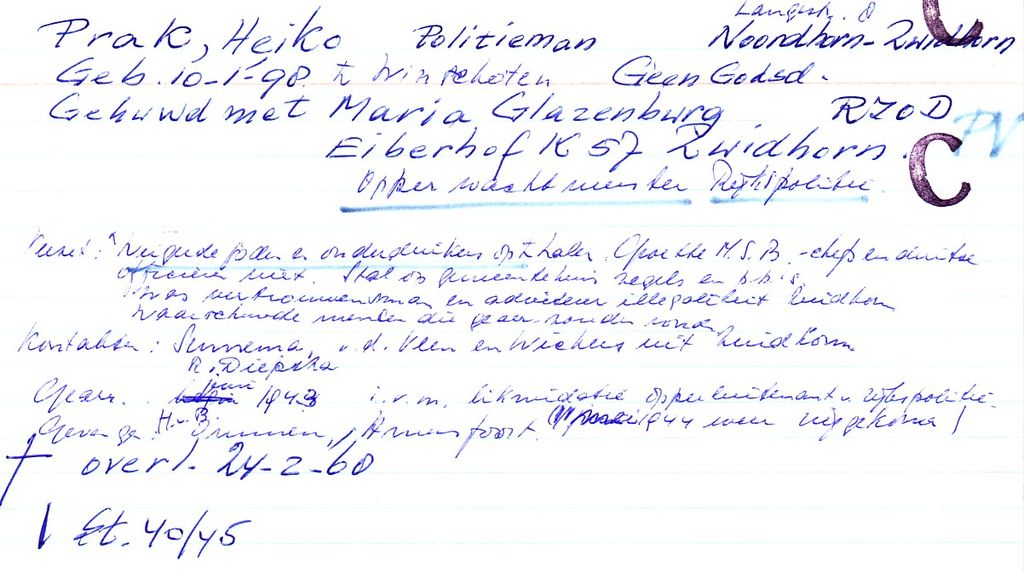 Langestr. 8
C
Prak, Heiko Politieman Noordhorn-Zuidhorn
Geb. 10-1-98 te Winschoten Geen Godsd.
Gehuwd met Maria Glazenburg R70D PV
Eiberhof K 57 Zuidhorn. C
Opper wachtmeester Rijkspolitie.
Verzet: Weigerde joden en onderduikers op te halen. Groette N.S.B.-chefs en duitse
officieren niet. Stal op gemeentehuis zegels en p.b.'s
Was vertrouwensman en adviseur illegaliteit Zuidhorn
Waarschuwde mensen die gearr. zouden worden
Kontakten: Sennema, v.d. Veen en Wichers uit Zuidhorn
R. Diepstra
Gearr. juni 1943 i.v.m. likwidatie opperluitenant v. rijkspolitie.
Gevangen H.v.B. Amersfoort. 1944 weer vrijgekomen!
† overl. 24-2-60
Et. 40/45